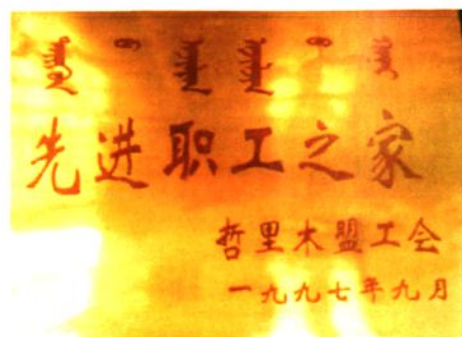 先进职工之家
哲里木盟工会
一九九七年九月